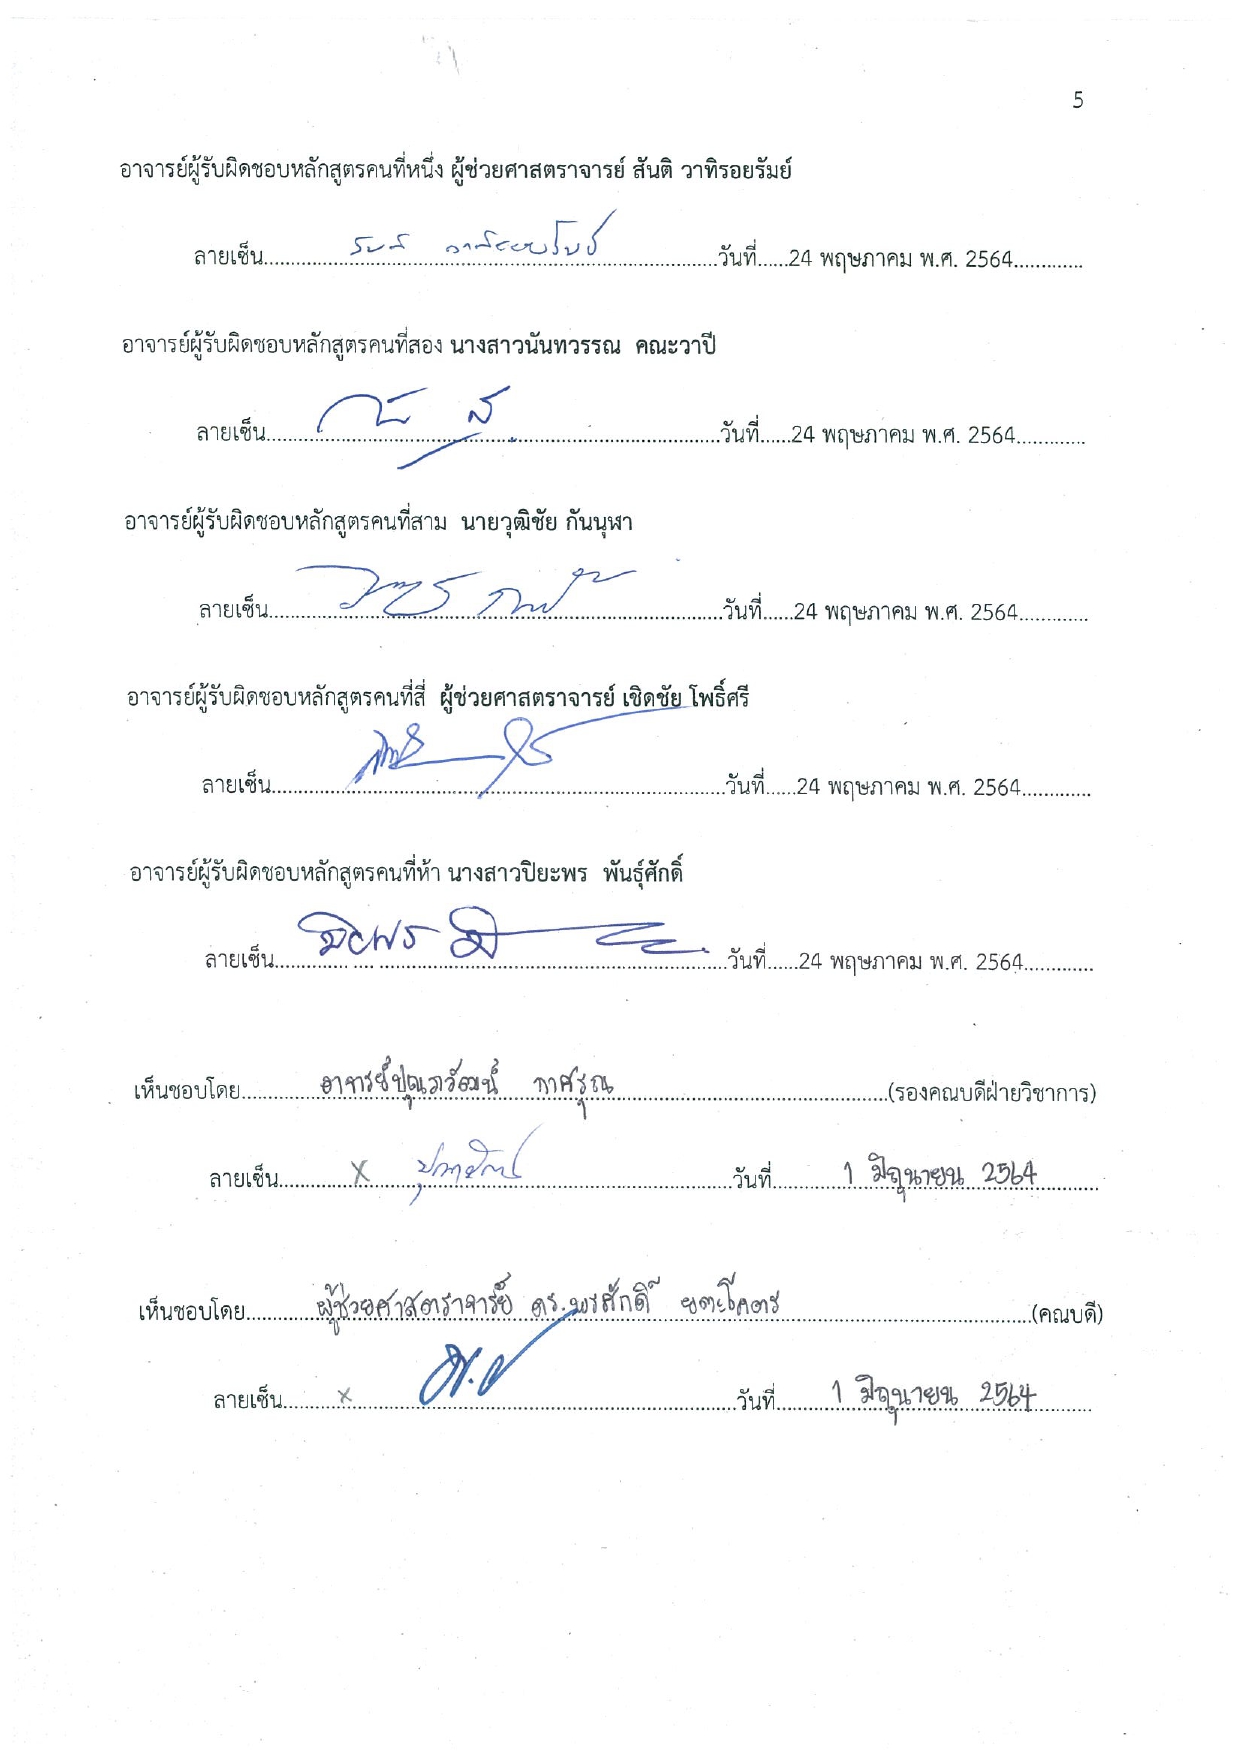 5
อาจารย์ผู้รับผิดชอบหลักสูตรคนที่หนึ่ง ผู้ช่วยศาสตราจารย์ สันติ วาทิรอยรัมย์
ลายเซ็น............วันที่......24 พฤษภาคม พ.ศ. 2564.............
อาจารย์ผู้รับผิดชอบหลักสูตรคนที่สอง นางสาวนันทวรรณ คณะวาปี
ลายเซ็น............วันที่......24 พฤษภาคม พ.ศ. 2564.............
อาจารย์ผู้รับผิดชอบหลักสูตรคนที่สาม นายวุฒิชัย กันนุฬา
ลายเซ็น............วันที่......24 พฤษภาคม พ.ศ. 2564.............
อาจารย์ผู้รับผิดชอบหลักสูตรคนที่สี่ ผู้ช่วยศาสตราจารย์ เชิดชัย โพธิ์ศรี
ลายเซ็น............วันที่......24 พฤษภาคม พ.ศ. 2564.............
อาจารย์ผู้รับผิดชอบหลักสูตรคนที่ห้า นางสาวปิยะพร พันธุ์ศักดิ์
ลายเซ็น............วันที่......24 พฤษภาคม พ.ศ. 2564.............
เห็นชอบโดย............อาจารย์ปุณภวัฒน์............(รองคณบดีฝ่ายวิชาการ)
ลายเซ็น............x............วันที่............1 มิถุนายน 2564............
เห็นชอบโดย............ผู้ช่วยศาสตราจารย์ ดร.พรศักดิ์ ยตะโคตร............(คณบดี)
ลายเซ็น............x............วันที่............1 มิถุนายน 2564............